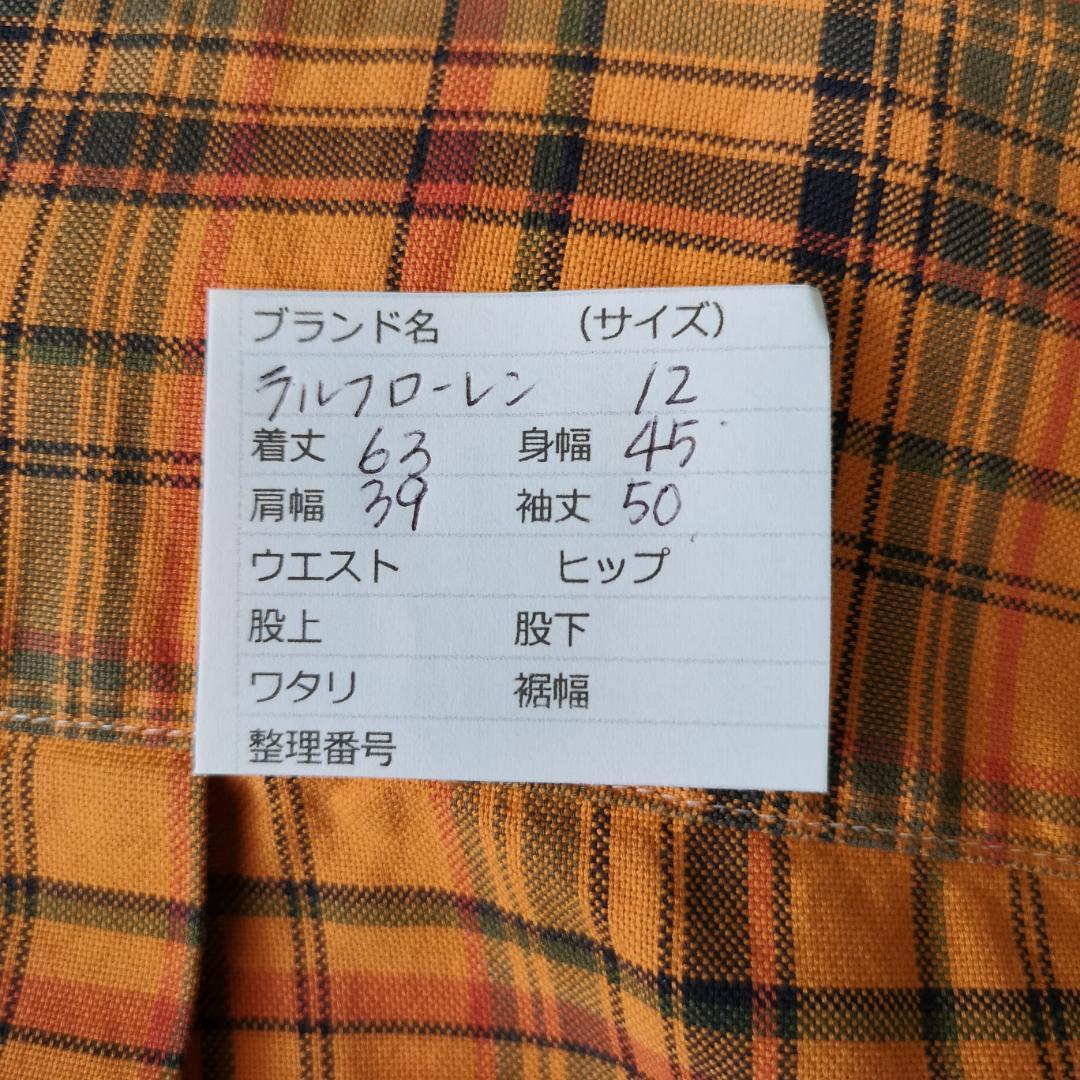 ブランド名 (サイズ)
ラルフローレン 12
着丈 63 身幅 45
肩幅 39 袖丈 50
ウエスト ヒップ
股上 股下
ワタリ 裾幅
整理番号